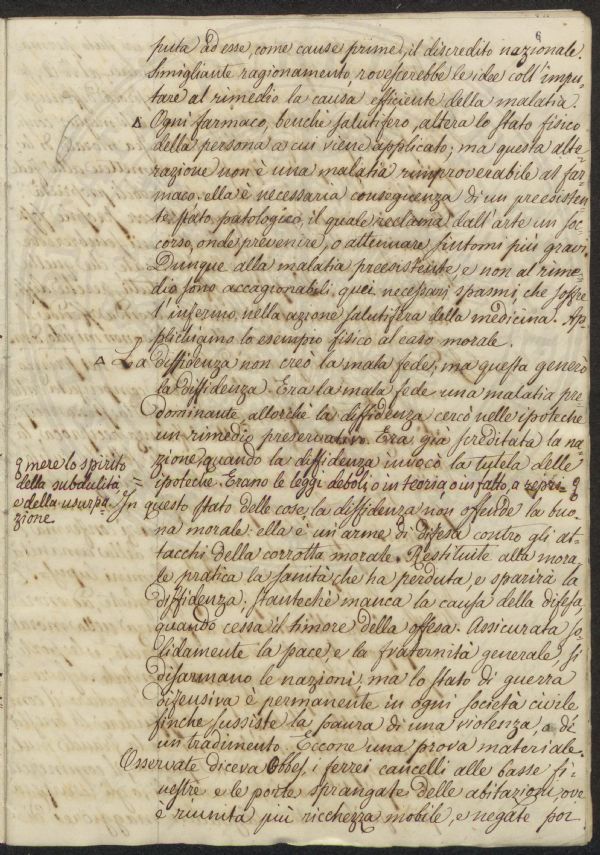 6
puta ad esse, come cause prime, il discredito nazionale.
Smigliante ragionamento rovescerebbe le idee coll'impu-
tare al rimedio la causa efficiente della malatia.
Ogni farmaco, benchè salutifero, altera lo stato fisico
della persona a cui viene applicato; ma questa alte-
razione non è una malatia rimproverabile al far-
maco. ella è necessaria conseguenza di un preesisten-
te stato patologico, il quale reclama dall'arte un soc-
corso, onde prevenire, o attenuare sintomi più gravi.
Dunque alla malatia preesistente, e non al rime-
dio sono accagionabili quei necessarj spasmi, che soffre
l'infermo nella azione salutifera della medicina. Ap-
plichiamo lo esempio fisico al caso morale.
La diffidenza non creò la mala fede, ma questa generò
la diffidenza. Era la mala fede una malatia pre
dominante, allorchè la diffidenza cercò nelle ipoteche
un rimedio preservativo. Era già screditata la na-
zione, quando la diffidenza invocò la tutela delle
ipoteche. Erano le leggi deboli o in teoria, o in fatto, a repri-
mere lo spirito
della subdulità,
e della usurpa-
zione.
In questo stato delle cose, la diffidenza non offende la buo-
na morale: ella è un'arme di difesa contro gli at-
tacchi della corrotta morale. Restituite alla mora-
le pratica la sanità che ha perduta, e sparirà la
diffidenza; stantechè manca la causa della difesa,
quando cessa il timore della offesa. Assicurata so-
lidamente la pace, e la fraternità generale, si
disarmano le nazioni; ma lo stato di guerra
difensiva è permanente in ogni società civile
finche sussiste la paura di una violenza, o di
un tradimento. Eccone una prova materiale.
Osservate diceva Obbes, i ferrei cancelli alle basse fi-
nestre e le porte sprangate delle abitazioni, ove
è riunita più ricchezza mobile, e negate poi